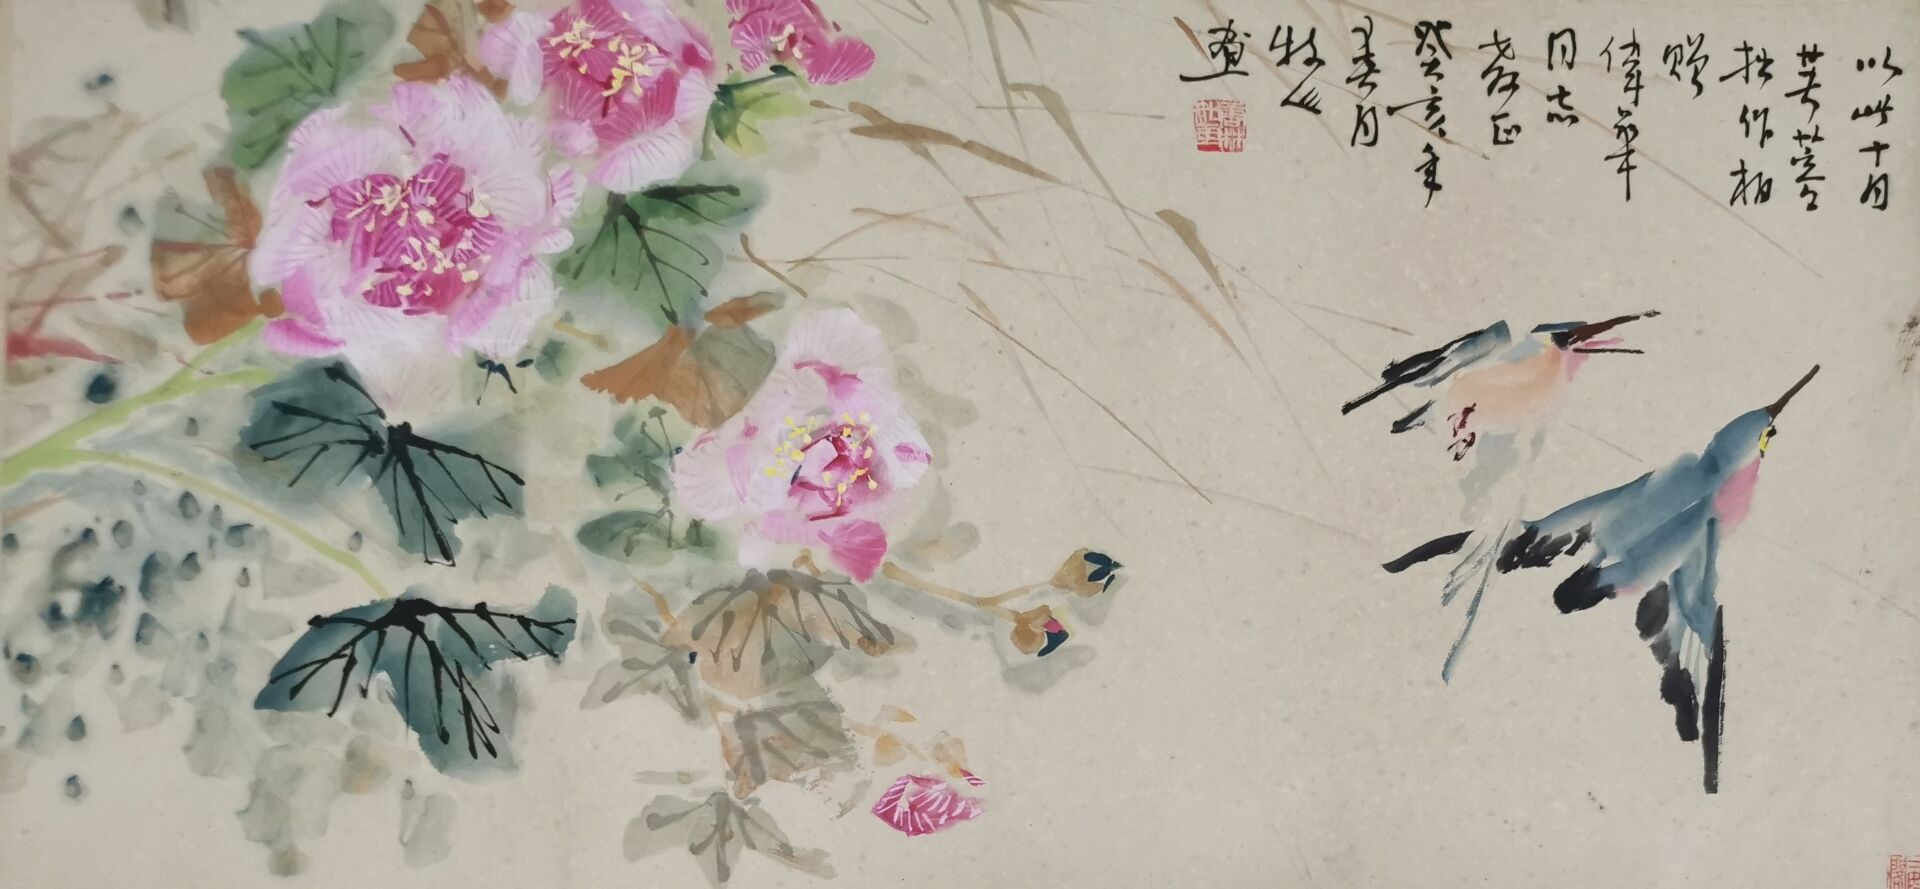 以此十月
芙蓉
拙作相
赠
伟翠
同志
教正
癸亥年
春月
牧人
画